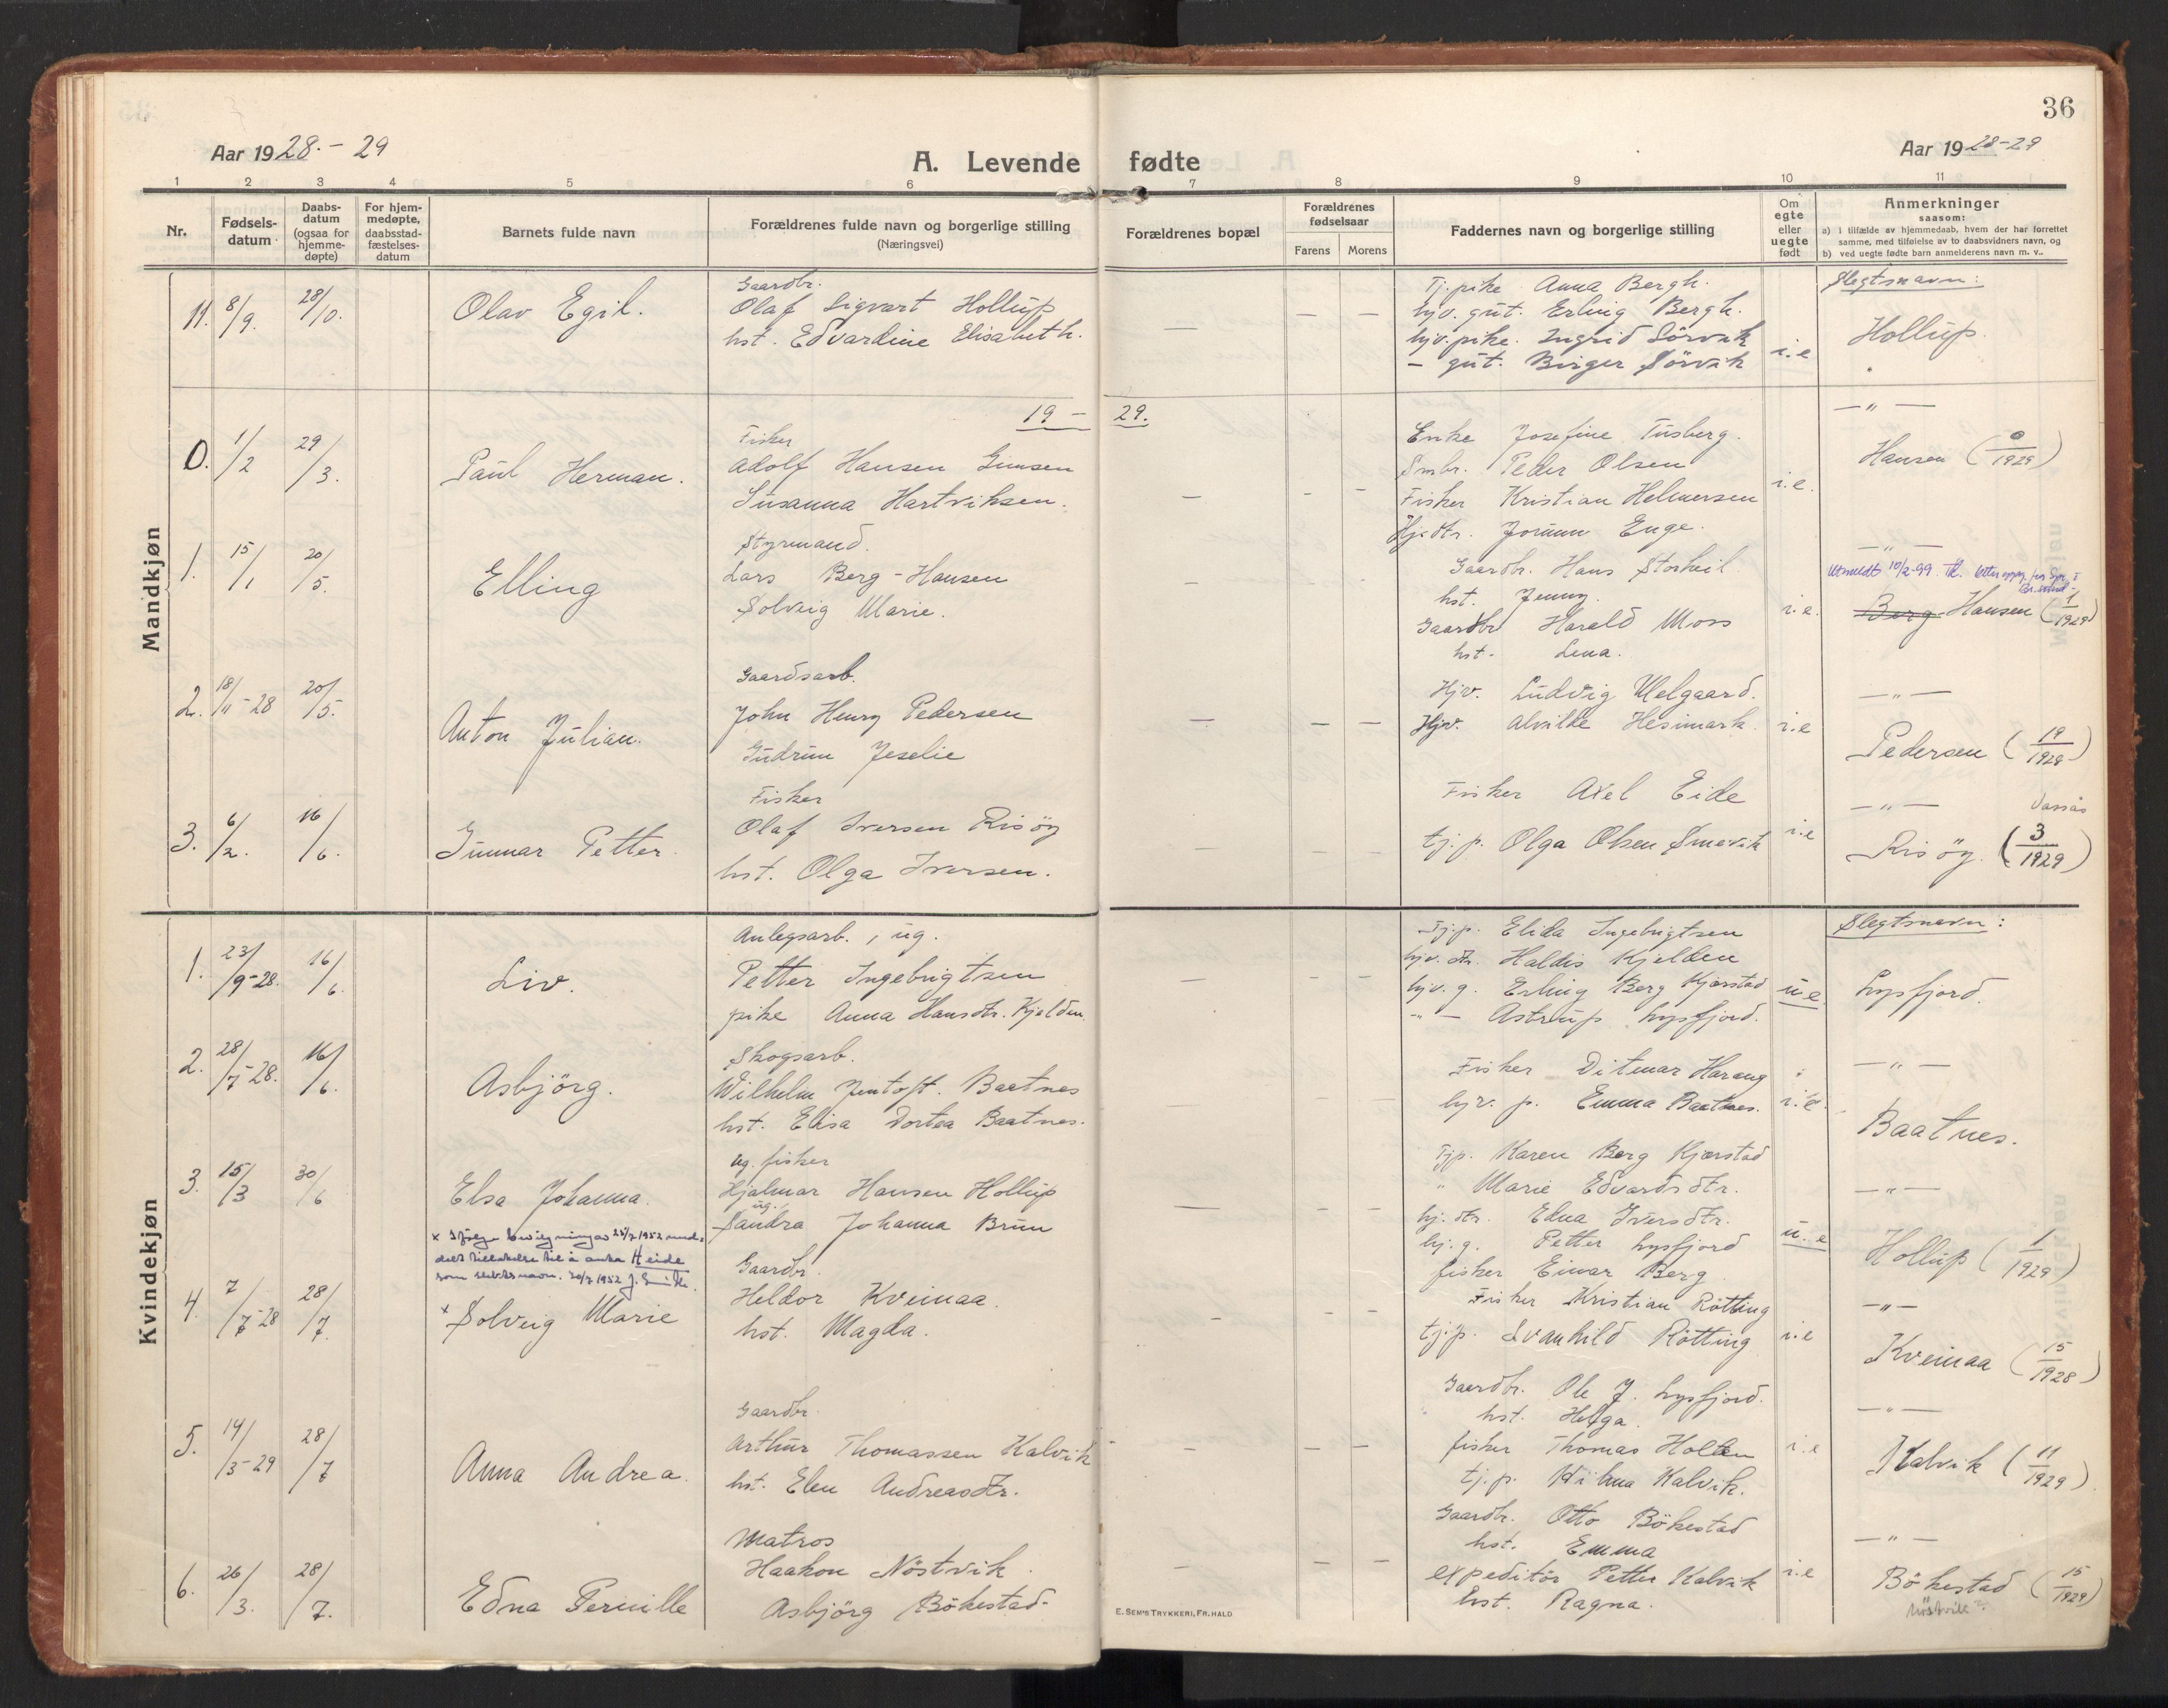 36
Aar 1928.-29
A. Levende fødte
Aar 1928-29
1 2 3 4 5 6 7 8 9 10 11
Nr.
Fødsels-
datum
Daabs-
datum
(ogsaa for
hjemme-
døpte)
For hjem-
medøpte,
daabsstad-
fæstelses-
datum
Barnets fulde navn
Forældrenes fulde navn og borgerlige stilling
(Næringsvei)
Forældrenes bopæl
Forældrenes
fødselsaar
Farens Morens
Faddernes navn og borgerlige stilling
Om
egte
eller
uegte
født
Anmerkninger
saasom:
a) i tilfælde av hjemmedaab, hvem der har forrettet
samme, med tilføielse av to daabsvidners navn, og
b) ved uegte fødte barn anmelderens navn m. v..
Mandkjøn
11. 8/9. 28/10. Olav Egil.
Gaardbr.
Olaf Sigvart Hollup
hst. Edvardine Elisabeth.
— — —
Tj.pike Anna Bergh.
hjv. gut. Erling Bergh.
hjv. pike. Ingrid Sörvik
— gut. Birger Sörvik
i.e
Slegtsnavn:
Hollup.
19 — 29.
0. 1/2 29/3. Paul Herman.
Fisker
Adolf Hansen Gimsen
Susanna Hartviksen.
— — —
Enke Josefine Tusberg.
Smbr. Peder Olsen
Fisker Kristian Helmersen
Hj.dtr. Jorunn Enge.
i.e.
— " —
Hansen (0/1929)
1. 15/1 20/5. Elling
Styrmand.
Lars Berg-Hansen
Solveig Marie.
— — —
Gaardbr. Hans Storheil
hst. Jenny.
Gaardbr Harald Moss
hst. Lena.
i.e.
— " —
Utmeldt 10/2-99
Berg-Hansen (1/1929)
2. 18/11-28 20/5. Anton Julian.
Gaardsarb.
John Henry Pedersen
Gudrun Jeselie
— — —
Hjv. Ludvig Melgaard.
Hjv. Alvilde Hesimark.
i.e
— " —
Pedersen (19/1928)
3. 6/2. 16/6. Gunnar Petter.
Fisker
Olaf Iversen Risöy
hst. Olga Iversen.
— — —
Fisker Axel Eide
tj.p. Olga Olsen Smevik
i.e
— " — Vassås
Risöy. (3/1929)
Kvindekjøn
1. 23/9-28. 16/6. Liv.
Anlegsarb., ug.
Petter Ingebrigtsen
pike Anna Hansdtr. Kjelden.
— — —
Tj.p. Elida Ingebrigtsen
hjv. dtr. Haldis Kjelden
hjv. g. Erling Berg Kjærstad
— " — Astrup Lysfjord.
u.e.
Slegtsnavn:
Lysfjord.
2. 28/7-28. 16/6. Asbjörg.
Skogsarb.
Wilhelm Jentoft. Baatnes
hst. Elisa Dortea Baatnes.
— — —
Fisker Ditmar Harang
hjv. p. Emma Baatnes.
i.e.
— " —
Baatnes.
3. 15/3 30/6 Elsa Johanna.
Ug. fisker
Hjalmar Hansen Hollup
ug.
Sandra Johanna Brun
— — —
Tjp. Karen Berg Kjærstad
" Marie Edvardsdtr.
hj. dtr. Edna Iversdtr.
hj. g. Petter Lysfjord
fisker Einar Berg
u. e
— " —
Hollup (1/1929)
x Ifølge bevilgning av 25/7 1952 med-
delt tillatelse til å anta Heide
som slektsnavn. 30/7 1952
4. 7/7-28 28/7. x Solveig Marie
Gaardbr.
Heldor Kveinaa.
hst. Magda.
— — —
Fisher Kristian Rötting
tj.p. Svanhild Rötting
i.e
— " —
Kveinaa (15/1928)
5. 14/3-29 28/7 Anna Andrea.
Gaardbr.
Arthur Thomassen Kalvik
hst. Elen Andreasdtr.
— — —
Gaardbr. Ole J. Lysfjord.
hst. Helga.
fisker Thomas Holten
tj.p. Wilma Kalvik.
i.e
— " —
Kalvik (11/1929)
6. 26/3. 28/7. Edna Pernille
Matros
Haakon Nöstvik.
Asbjörg Bökestad-
— — —
Gaardbr. Otto Bökestad
hst. Emma
expeditör Petter Kalvik
hst. Ragna.
i.e
— " —
Bökestad (15/1929)
Nöstvik?
E. SEM'S TRYKKERI, FR.HALD